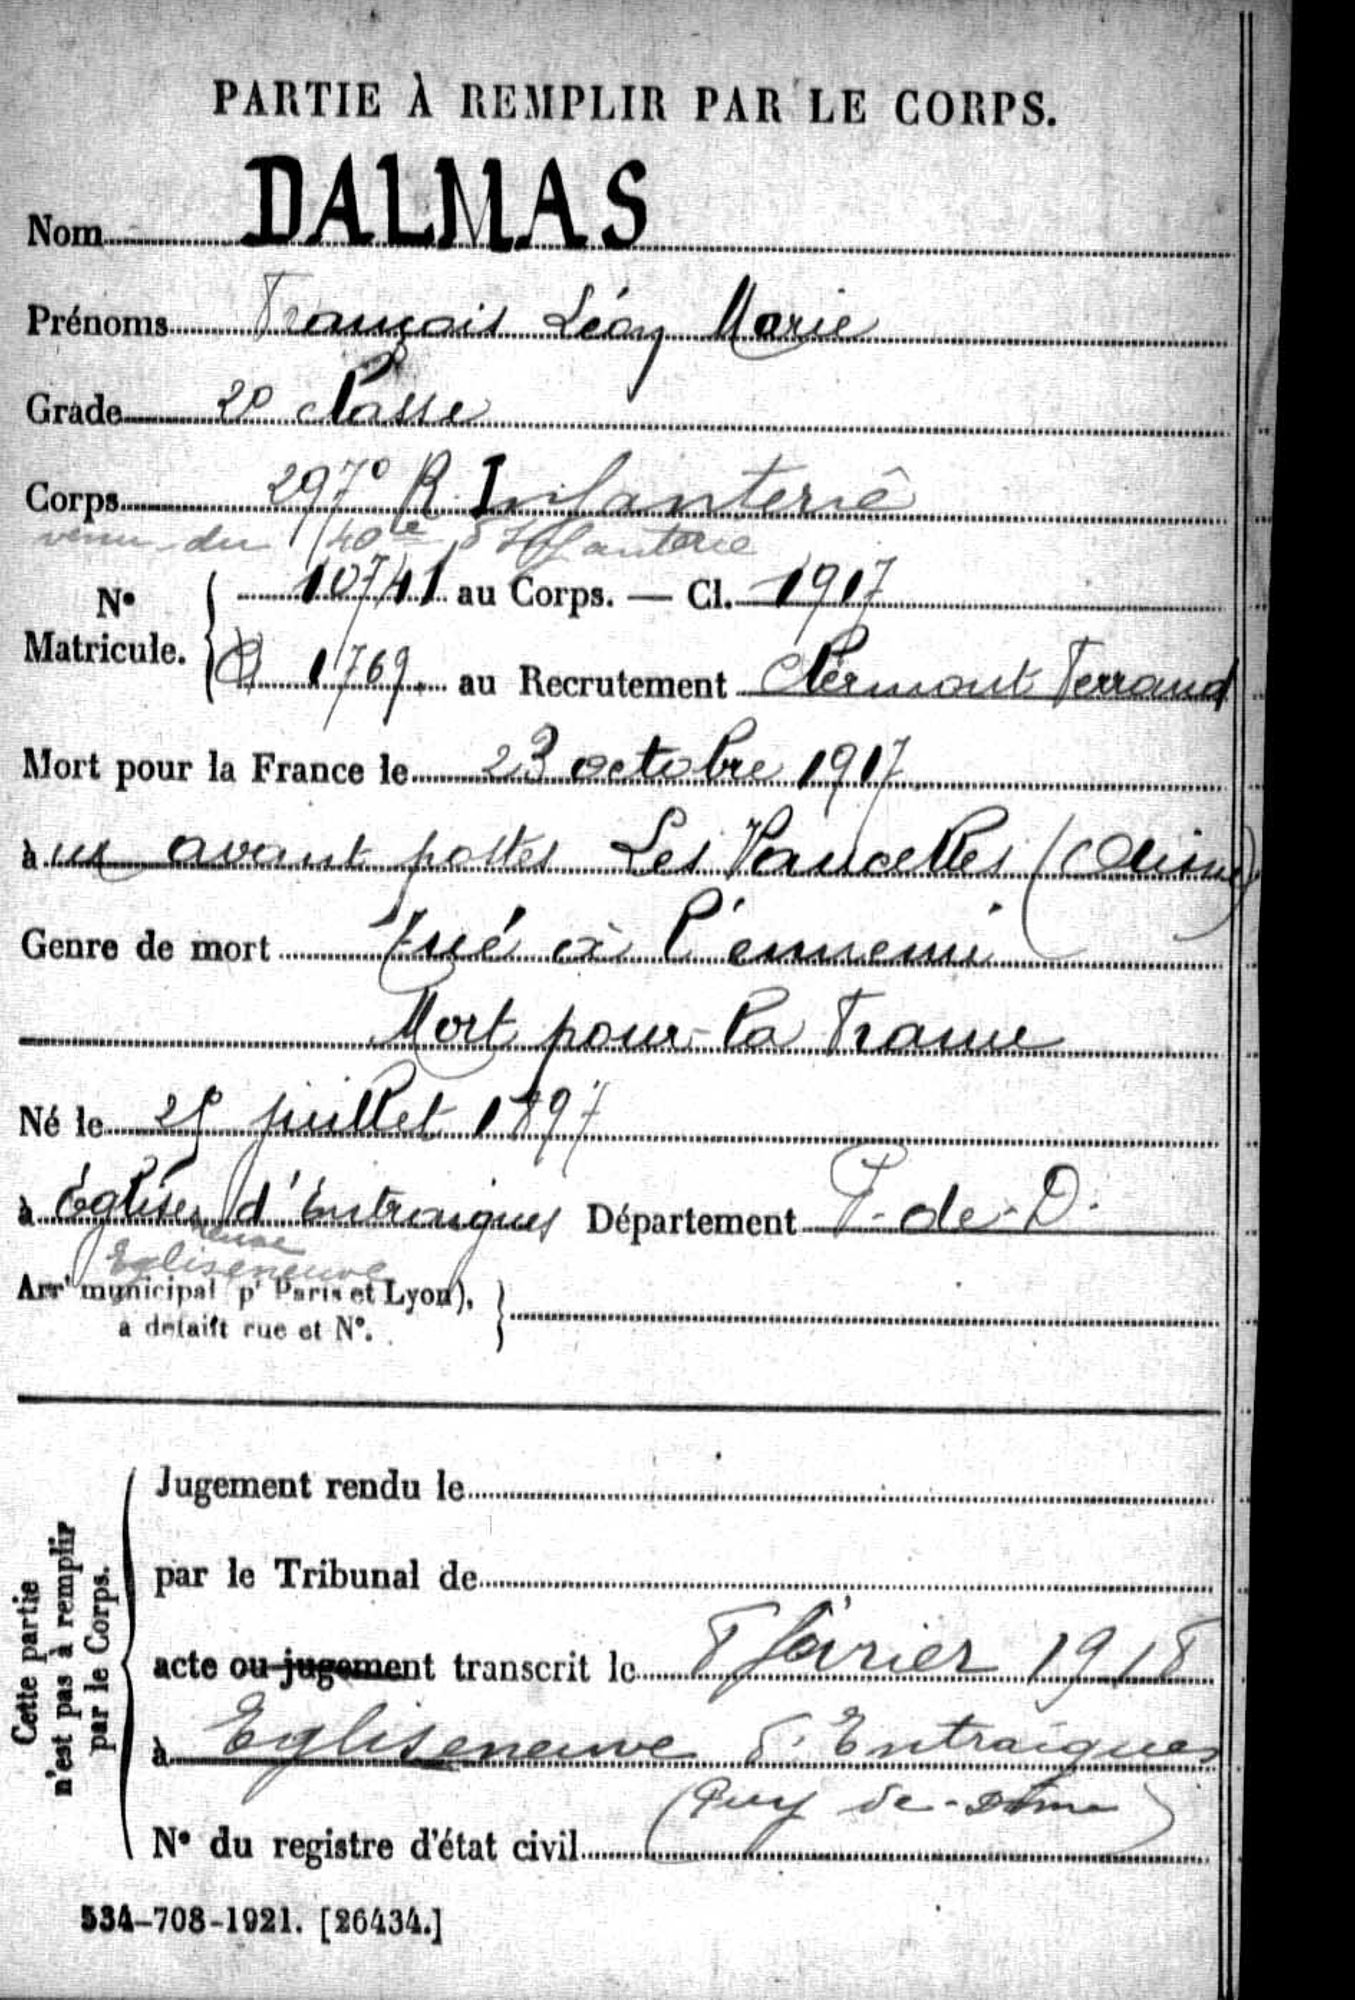 PARTIE À REMPLIR PAR LE CORPS.
Nom DALMAS
Prénoms François Léon Marie
Grade 2e classe
Corps 297e R. Infanterie
venu du 140e d'Infanterie
No Matricule. { 10741 au Corps. — Cl. 1917
1769. au Recrutement Clermont Ferrand
Mort pour la France le 23 octobre 1917
à ux avant postes Les Vaucelles (Aisne)
Genre de mort Tué à l'ennemi
Mort pour la France
Né le 25 juillet 1897
à Églisen d'Entraigues Département P-de-D.
neuve
Egliseneuve
Arrt municipal (pr Paris et Lyon), }
à défaut rue et No.
Cette partie n'est pas à remplir par le Corps.
Jugement rendu le
par le Tribunal de
acte ou jugement transcrit le 8 février 1918
à Egliseneuve d'Entraigues
(Puy de-Dôme)
No du registre d'état civil
534-708-1921. [26434.]